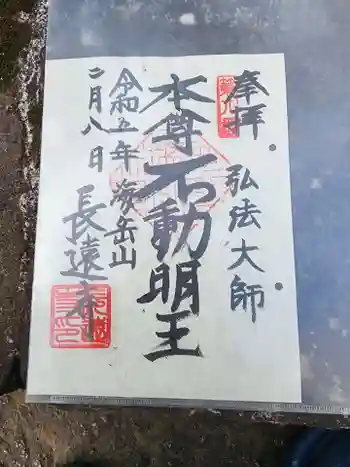 奉拝
弘法大師
本尊不動明王
海岳山
長遠寺
令和五年
二月八日